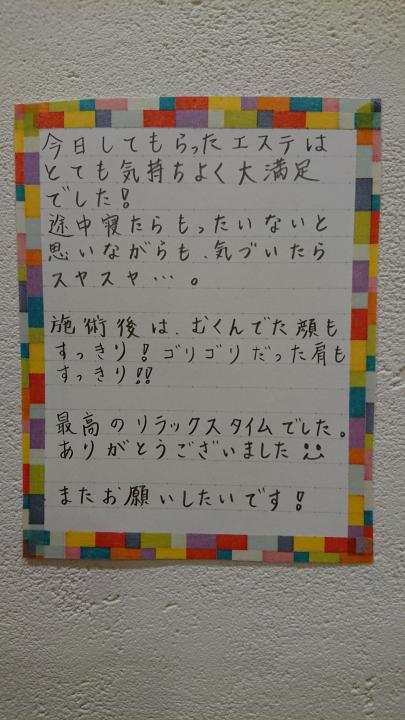 今日してもらったエステは
とても気持ちよく大満足
でした!
途中寝たらもったいないと
思いながらも、気づいたら
スヤスヤ…。
施術後は、むくんでた顔も
すっきり!ゴリゴリだった肩も
すっきり!!
最高のリラックスタイムでした。
ありがとうございました
またお願いしたいです!